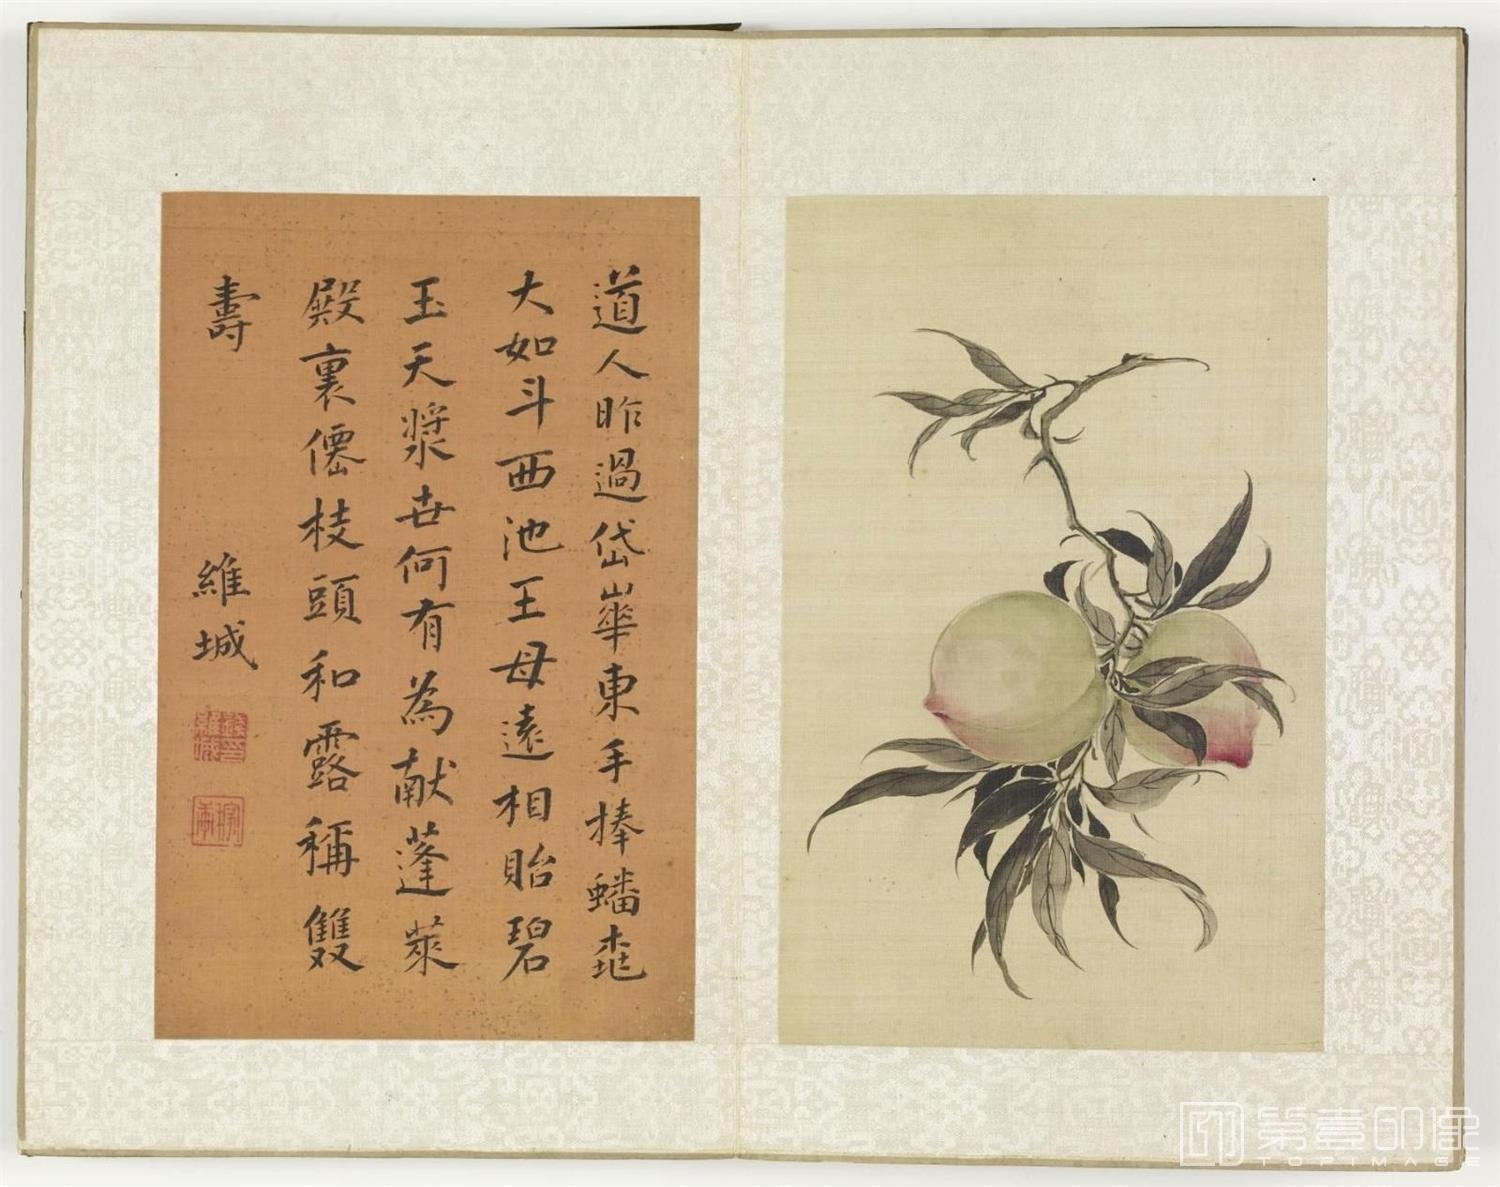 道人昨過岱崋東手捧蟠桃
大如斗西池王母遠相貽碧
玉天漿世何有為献蓬萊
殿裏僊枝頭和露稱雙
壽
維城
第壹印象
TOPIMAGE